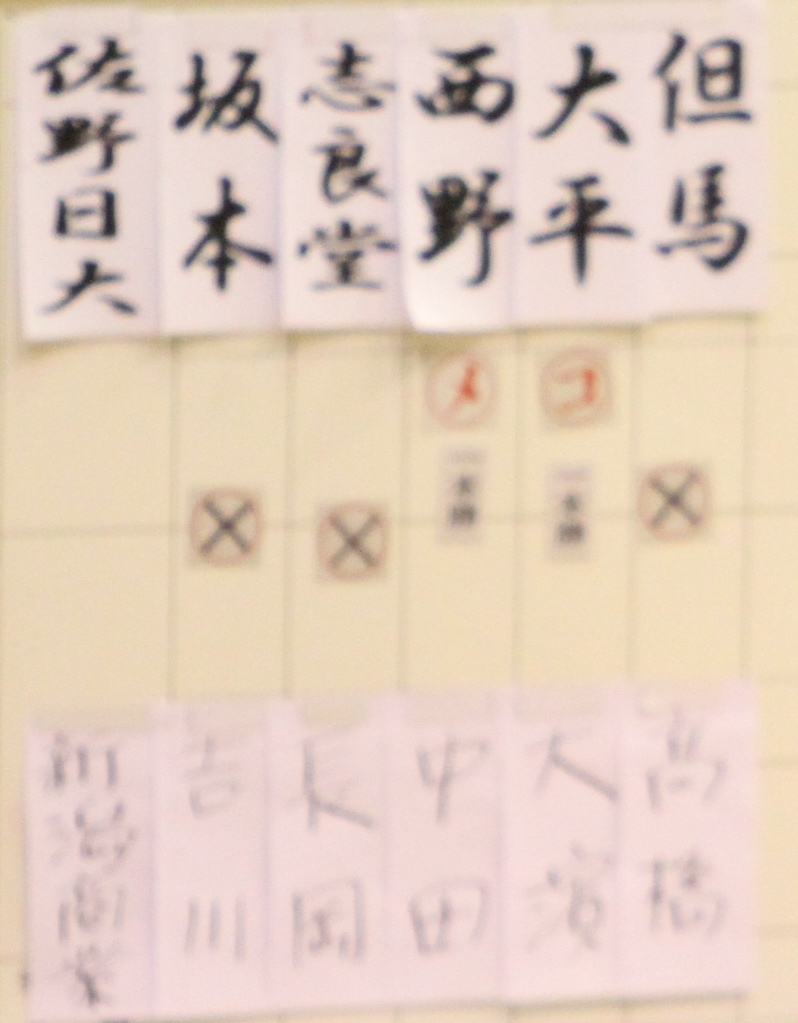 但馬
大平
西野
志良堂
坂本
佐野日大
メ
コ
一本勝
一本勝
高橋
大濱
中田
長岡
吉川
新潟商業